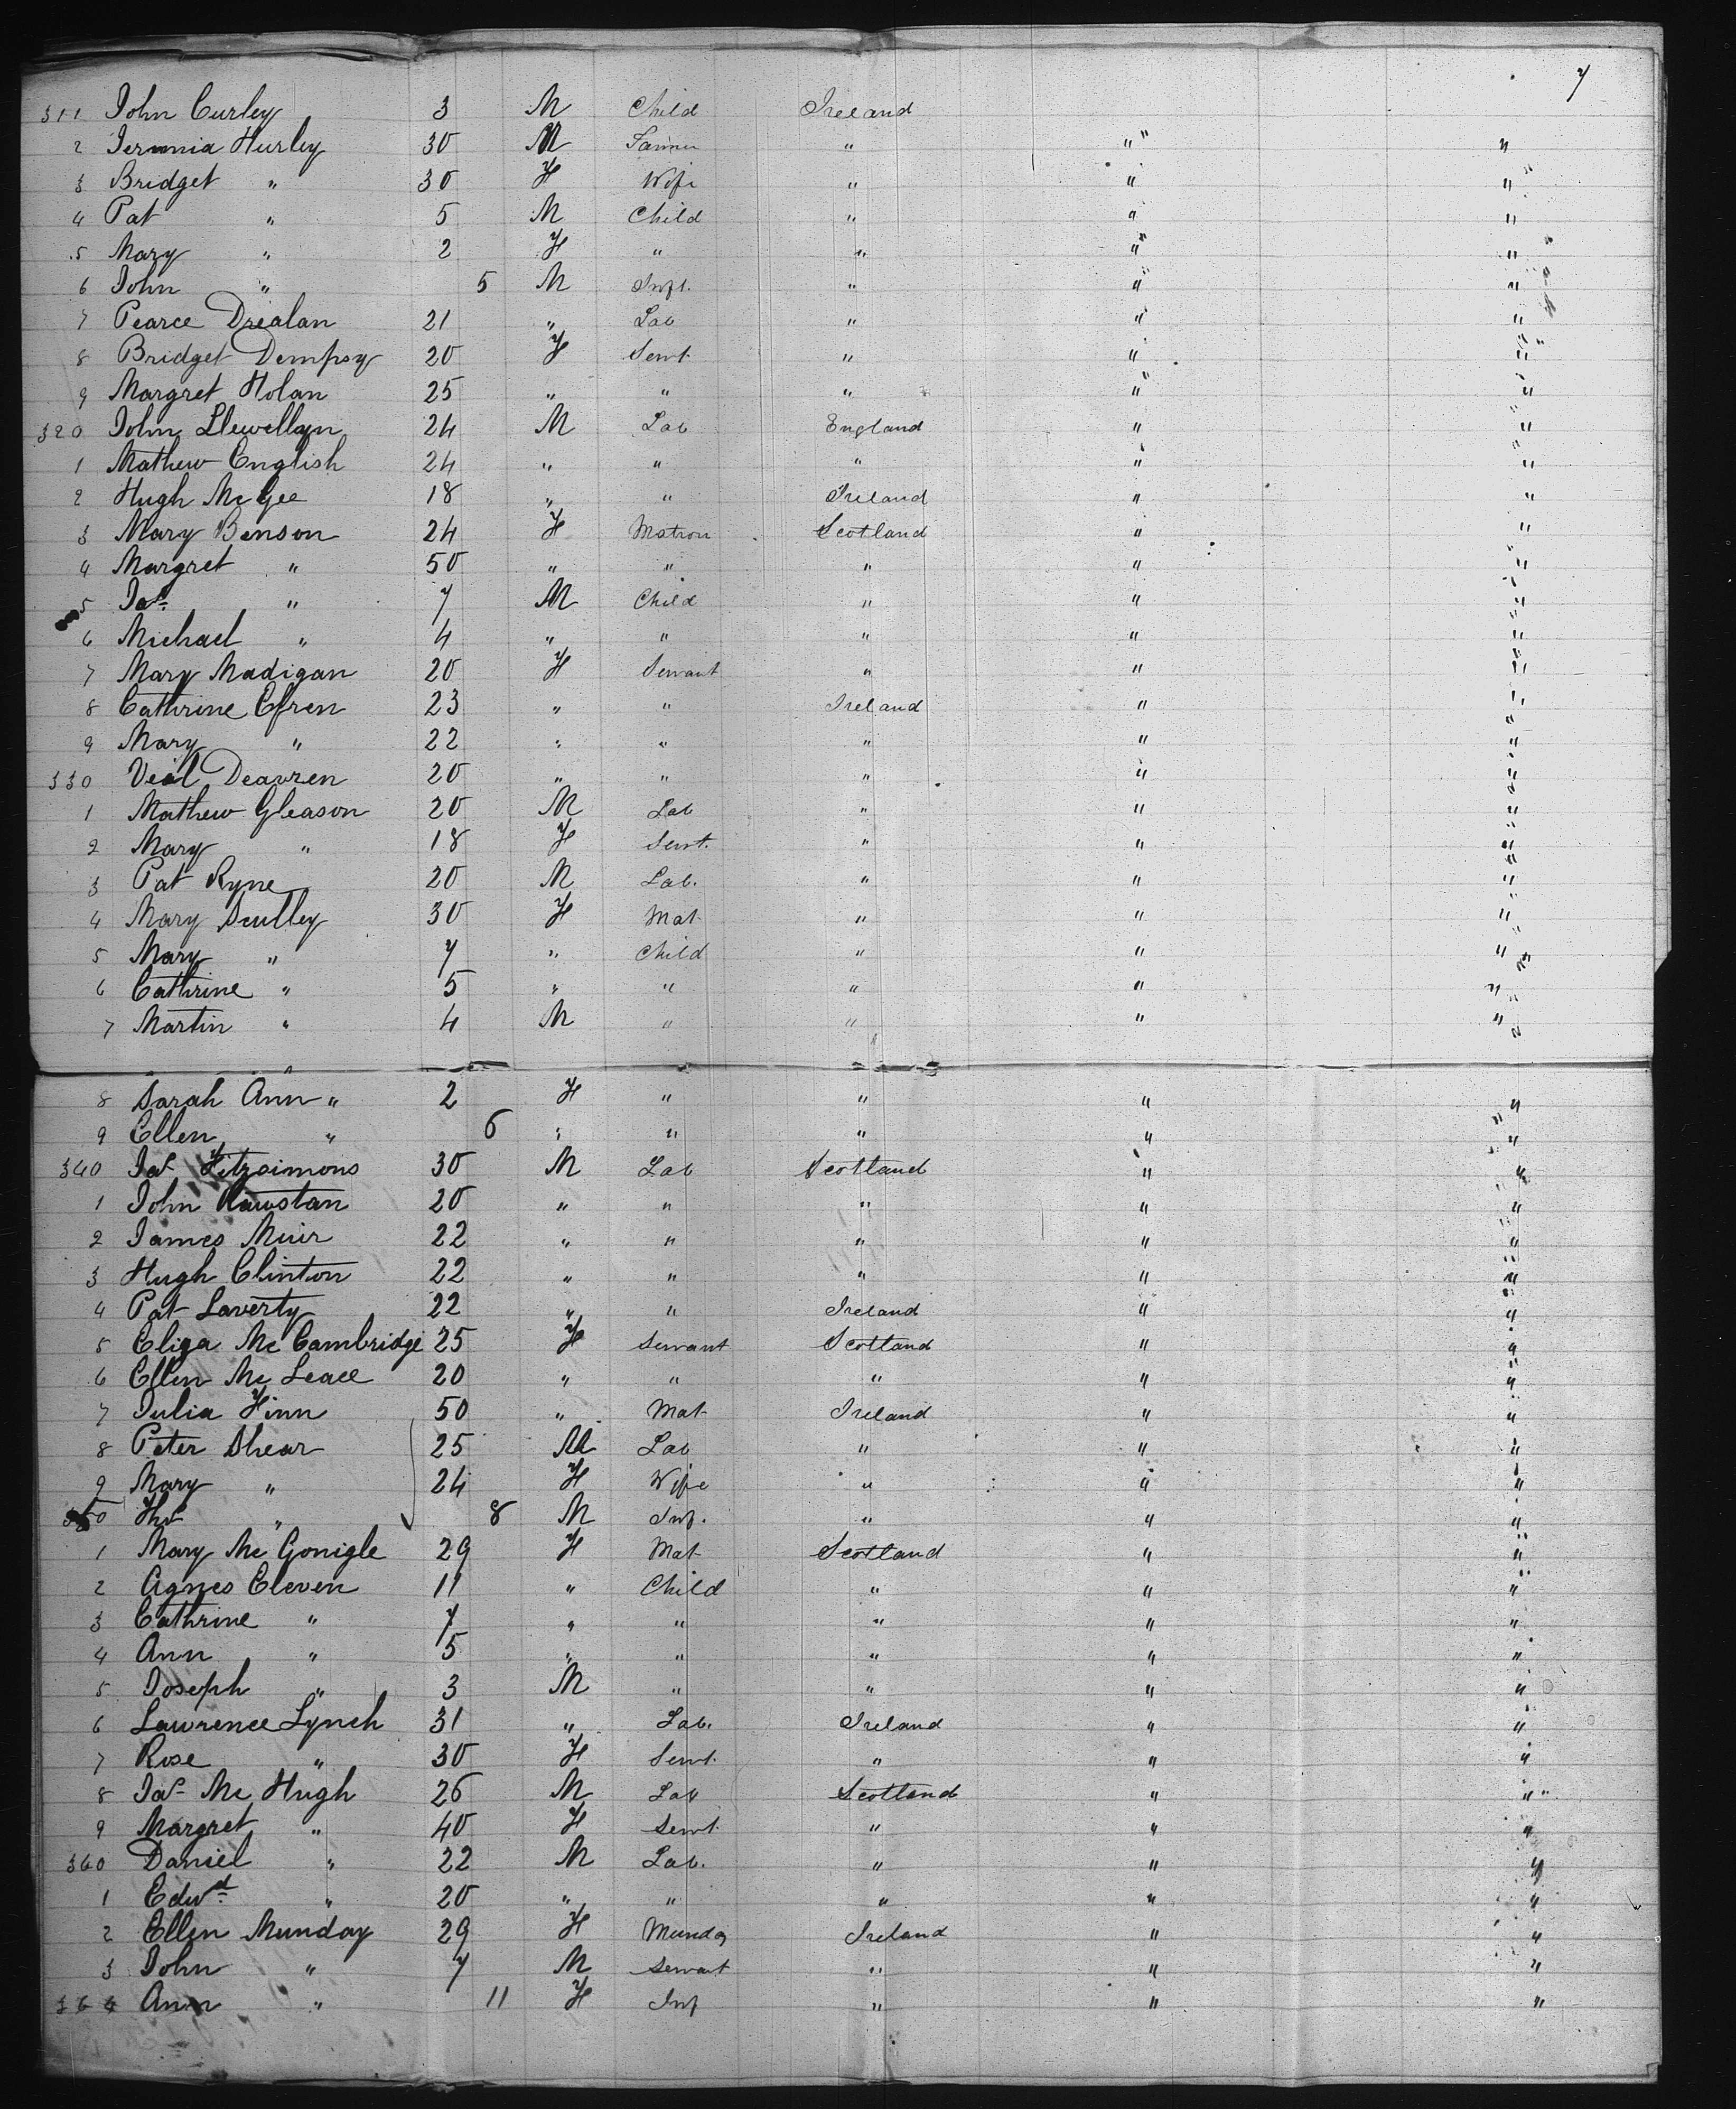 7
311 John Curley 3 M Child Ireland
2 Jerimia Hurley 30 M Farmer " " "
3 Bridget " 30 F Wife " " "
4 Pat " 5 M Child " " "
5 Mary " 2 F " " " "
6 John " 5 M Inft. " " "
7 Pearce Drealan 21 " Lab " " "
8 Bridget Dempsy 20 F Servt. " " "
9 Margret Holan 25 " " " " "
320 John Llewellyn 24 M Lab England " "
1 Mathew English 24 " " " " "
2 Hugh McGee 18 " " Ireland " "
3 Mary Benson 24 F Matron Scotland " "
4 Margret " 50 " " " " "
5 Jas " 7 M Child " " "
6 Michael " 4 " " " " "
7 Mary Madigan 20 F Servant " " "
8 Cathrine Efren 23 " " Ireland " "
9 Mary " 22 " " " " "
330 Deavren 20 " " " " "
1 Mathew Gleason 20 M Lab " " "
2 Mary " 18 F Servt. " " "
3 Pat Ryne 20 M Lab. " " "
4 Mary Sculley 30 F Mat " " "
5 Mary " 7 " Child " " "
6 Cathrine " 5 " " " " "
7 Martin " 4 M " " " "
8 Sarah Ann " 2 F " " " "
9 Ellen " 6 " " " " "
340 Jas Fitzsimons 30 M Lab Scotland " "
1 John Rawstan 20 " " " " "
2 James Muir 22 " " " " "
3 Hugh Clinton 22 " " " " "
4 Pat Laverty 22 " " Ireland " "
5 Eliza McCambridge 25 F Servant Scotland " "
6 Ellen Mc Leace 20 " " " " "
7 Julia Finn 50 " Mat Ireland " "
8 Peter Shear 25 M Lab " " "
9 Mary " 24 F Wife " " "
350 Ths " 8 M Inf. " " "
1 Mary McGonigle 29 F Mat Scotland " "
2 Agnes Eleven 11 " Child " " "
3 Cathrine " 7 " " " " "
4 Ann " 5 " " " " "
5 Joseph " 3 M " " " "
6 Lawrence Lynch 31 " Lab. Ireland " "
7 Rose " 30 F Servt. " " "
8 Jas Mc Hugh 26 M Lab Scotland " "
9 Margret " 40 F Servt. " " "
360 Daniel " 22 M Lab. " " "
1 Edwd " 20 " " " " "
2 Ellen Munday 29 F Munday Ireland " "
3 John " 7 M Servant " " "
364 Ann " 11 F Inf " " "